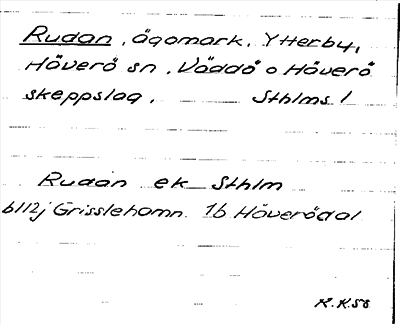 Rudan, ägomark, Ytterby,
Häverö sn, Väddö o Häverö
skeppslag, Sthlms l
Rudan ek Sthlm
b112j Grisslehamn 1b Häverödal
R.K.58